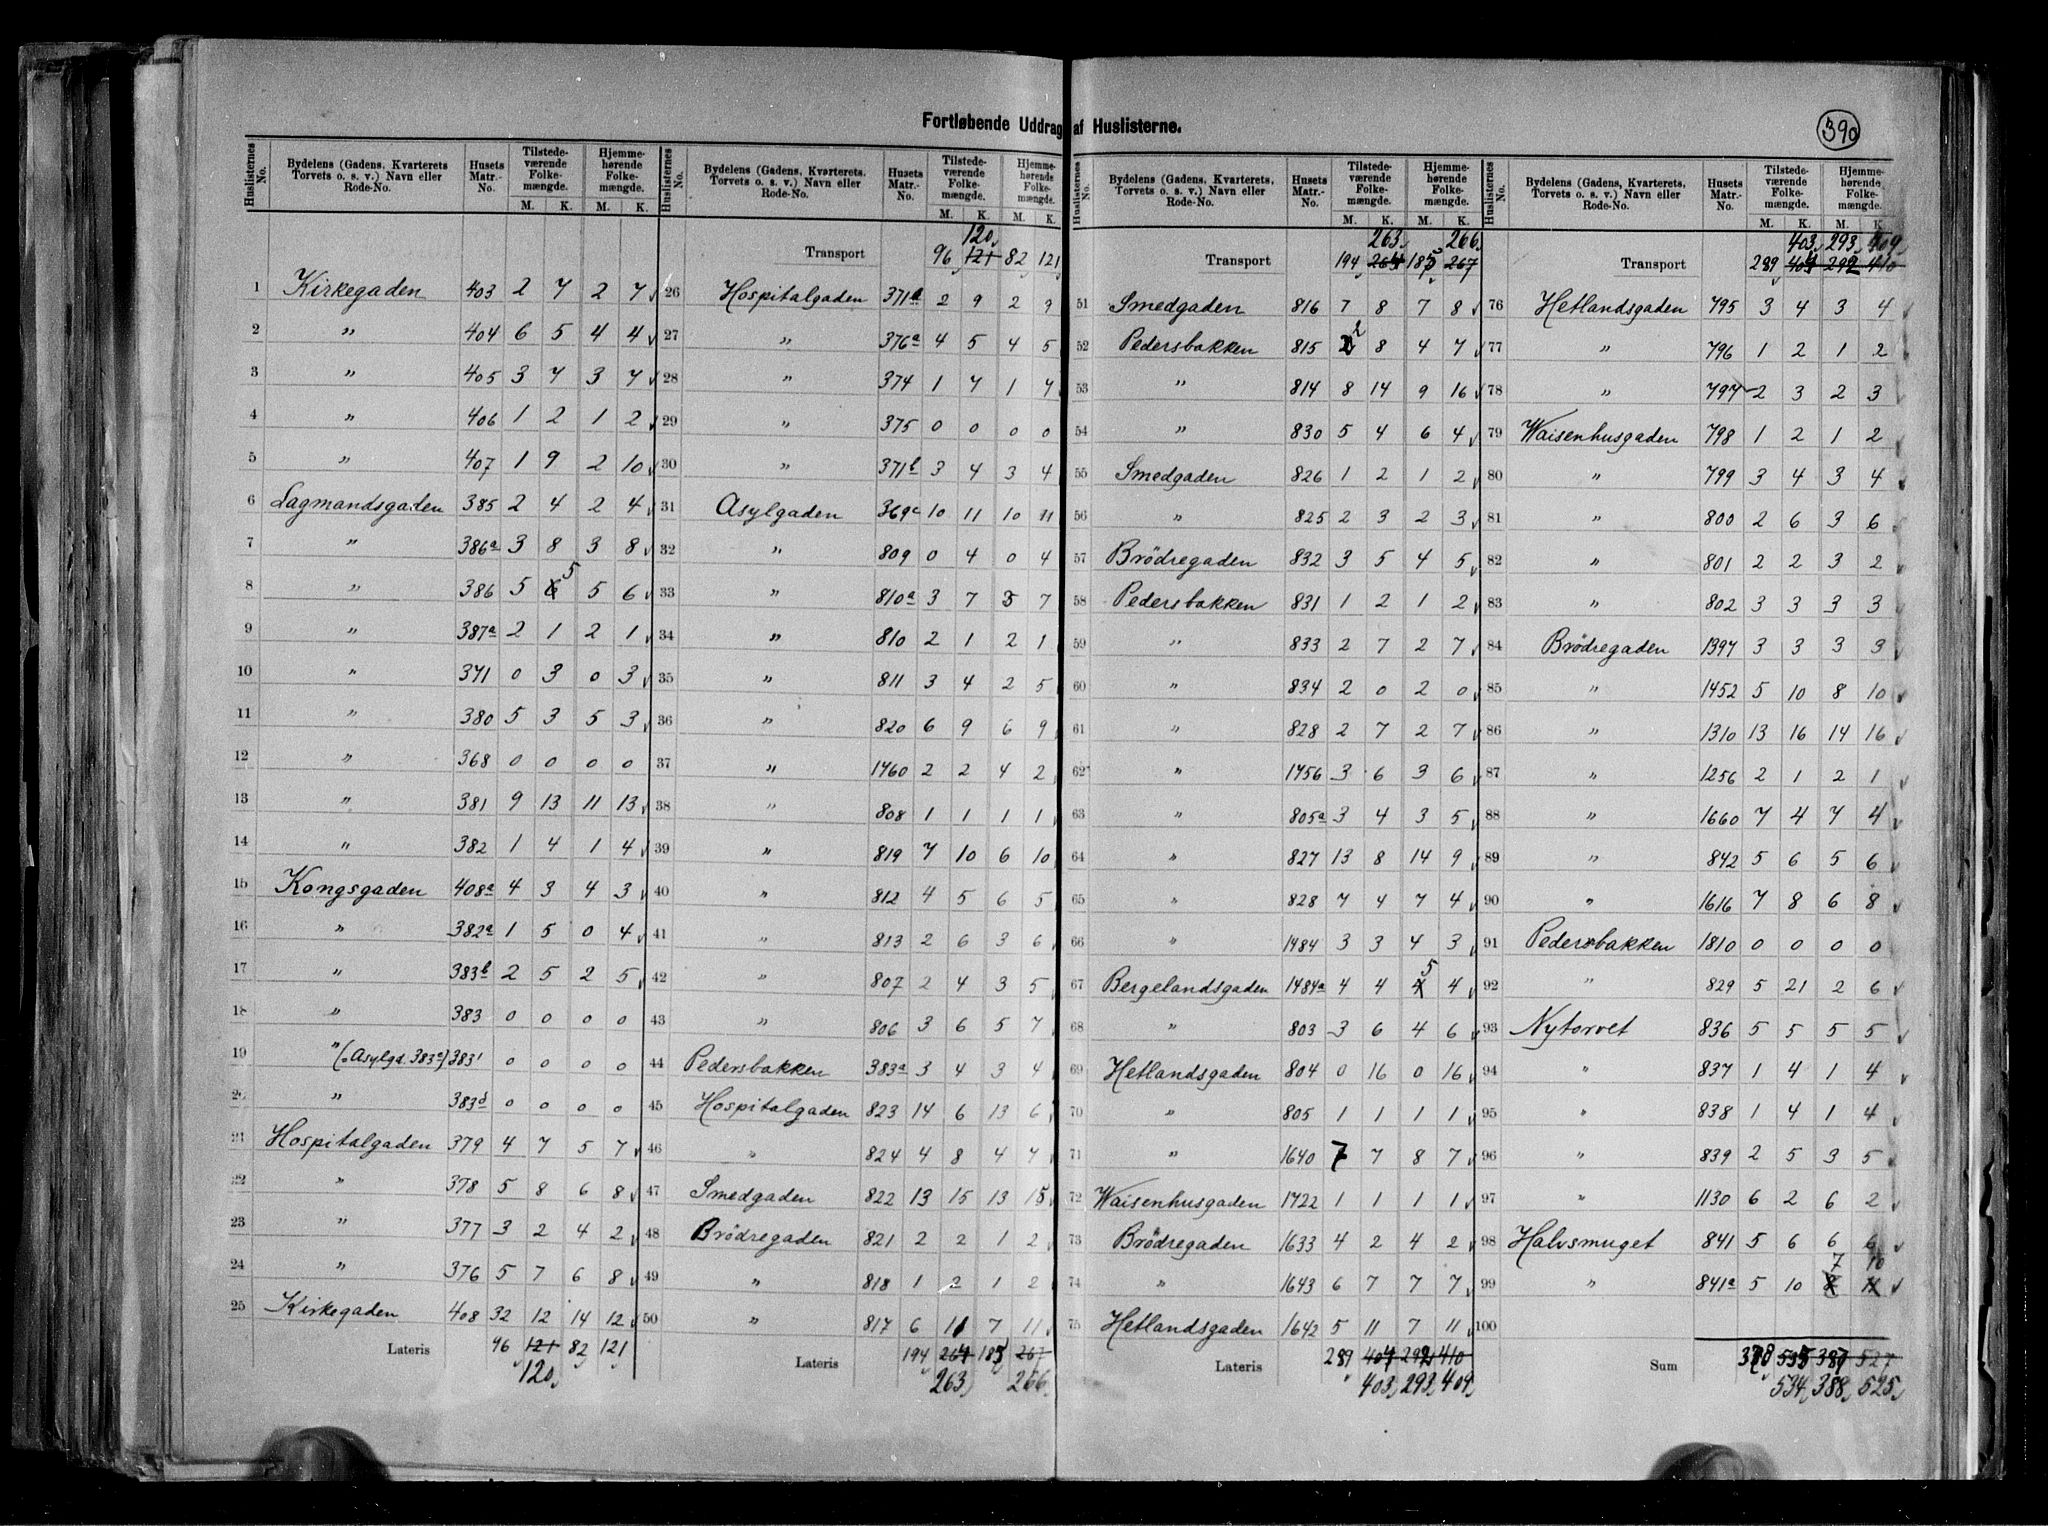 Fortløbende Uddrag af Huslisterne.
390
Huslisternes No. | Bydelens (Gadens, Kvarterets Torvets o. s. v.) Navn eller Rode-No. | Husets Matr.-No. | Tilstedeværende Folkemængde. M. K. | Hjemmehørende Folkemængde. M. K.
1 Kirkegaden 403 2 7 2 7
2 " 404 6 5 4 4
3 " 405 3 7 3 7
4 " 406 1 2 1 2
5 " 407 1 9 2 10
6 Lagmandsgaden 385 2 4 2 4
7 " 386a 3 8 3 8
8 " 386 5 6 5 5 6
9 " 387a 2 1 2 1
10 " 371 0 3 0 3
11 " 380 5 3 5 3
12 " 368 0 0 0 0
13 " 381 9 13 11 13
14 " 382 1 4 1 4
15 Kongsgaden 408a 4 3 4 3
16 " 382a 1 5 0 4
17 " 383b 2 5 2 5
18 " 383 0 0 0 0
19 " (Asylgd. 383e) 383 0 0 0 0
20 " 383d 0 0 0 0
21 Hospitalgaden 379 4 7 5 7
22 " 378 5 8 6 8
23 " 377 3 2 4 2
24 " 376 5 7 6 8
25 Kirkegaden 408 32 12 14 12
Lateris 96 121 82 121
120
Huslisternes No. | Bydelens (Gadens, Kvarterets, Torvets o. s. v.) Navn eller Rode-No. | Husets Matr.-No. | Tilstedeværende Folkemængde. M. K. | Hjemmehørende Folkemængde. M. K.
120
Transport 96 121 82 121
26 Hospitalgaden 371a 2 9 2 9
27 " 376a 4 5 4 5
28 " 374 1 7 1 7
29 " 375 0 0 0 0
30 " 371b 3 4 3 4
31 Asylgaden 369c 10 11 10 11
32 " 809 0 4 0 4
33 " 810a 3 7 3 7
34 " 810 2 1 2 1
35 " 811 3 4 2 5
36 " 820 6 9 6 9
37 " 1460 2 2 4 2
38 " 808 1 1 1 1
39 " 819 7 10 6 10
40 " 812 4 5 6 5
41 " 813 2 6 3 6
42 " 807 2 4 3 5
43 " 806 3 6 5 7
44 Pedersbakken 383a 3 4 3 4
45 Hospitalgaden 823 14 6 13 6
46 " 824 4 8 4 7
47 Smedgaden 822 13 15 13 15
48 Brödregaden 821 2 2 1 2
49 " 818 1 2 1 2
50 " 817 6 11 7 11
Lateris 194 264 185 267
263 266
Huslisternes No. | Bydelens (Gadens, Kvarterets, Torvets o. s. v.) Navn eller Rode-No. | Husets Matr.-No. | Tilstedeværende Folkemængde. M. K. | Hjemmehørende Folkemængde. M. K.
263 266
Transport 194 264 185 267
51 Smedgaden 816 7 8 7 8
52 Pedersbakken 815 2 8 4 7
53 " 814 8 14 9 16
54 " 830 5 4 6 4
55 Smedgaden 826 1 2 1 2
56 " 825 2 3 2 3
57 Brödregaden 832 3 5 4 5
58 Pedersbakken 831 1 2 1 2
59 " 833 2 7 2 7
60 " 834 2 0 2 0
61 " 828 2 7 2 7
62 " 1456 3 6 3 6
63 " 805a 3 4 3 5
64 " 827 13 8 14 9
65 " 828 7 4 7 4
66 " 1484 3 3 4 3
67 Bergelandsgaden 1484a 4 4 4 5 4
68 " 803 3 6 4 6
69 Hetlandsgaden 804 0 16 0 16
70 " 805 1 1 1 1
71 " 1640 7 7 8 7
72 Waisenhusgaden 1722 1 1 1 1
73 Brödregaden 1633 4 2 4 2
74 " 1643 6 7 7 7
75 Hetlandsgaden 1642 5 11 7 11
Lateris 289 404 292 410
403 293 409
Huslisternes No. | Bydelens (Gadens, Kvarterets, Torvets o. s. v.) Navn eller Rode-No. | Husets Matr.-No. | Tilstedeværende Folkemængde. M. K. | Hjemmehørende Folkemængde. M. K.
403 293 409
Transport 289 404 292 410
76 Hetlandsgaden 795 3 4 3 4
77 " 796 1 2 1 2
78 " 797 2 3 2 3
79 Waisenhusgaden 798 1 2 1 2
80 " 799 3 4 3 4
81 " 800 2 6 3 6
82 " 801 2 2 3 2
83 " 802 3 3 3 3
84 Brödregaden 1397 3 3 3 3
85 " 1452 5 10 8 10
86 " 1310 13 16 14 16
87 " 1256 2 1 2 1
88 " 1660 7 4 7 4
89 " 842 5 6 5 6
90 " 1616 7 8 6 8
91 Pedersbakken 1810 0 0 0 0
92 " 829 5 21 2 6
93 Nytorvet 836 5 5 5 5
94 " 837 1 4 1 4
95 " 838 1 4 1 4
96 " 839 2 5 3 5
97 " 1130 6 2 6 2
98 Halvsmuget 841 5 6 6 6
99 " 841a 5 10 8 7 11 10
100
Sum 378 535 387 527
534 388 525